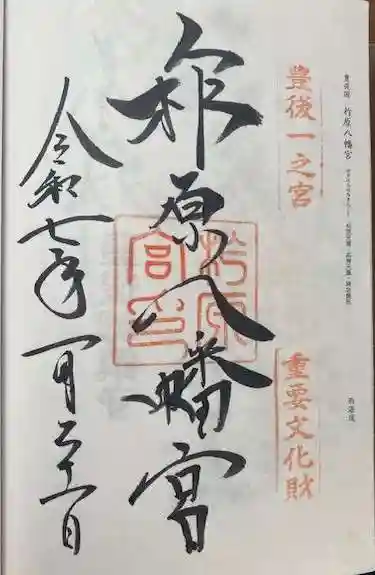 豊後国 柞原八幡宮
西海道
豊後一之宮
重要文化財
柞原八幡宮
柞原宮印
令和七年一月二十一日